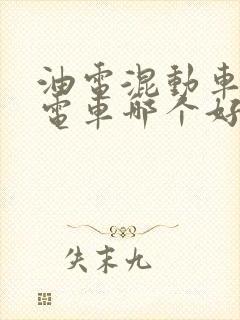 油電混動車
電車哪个好
失末九